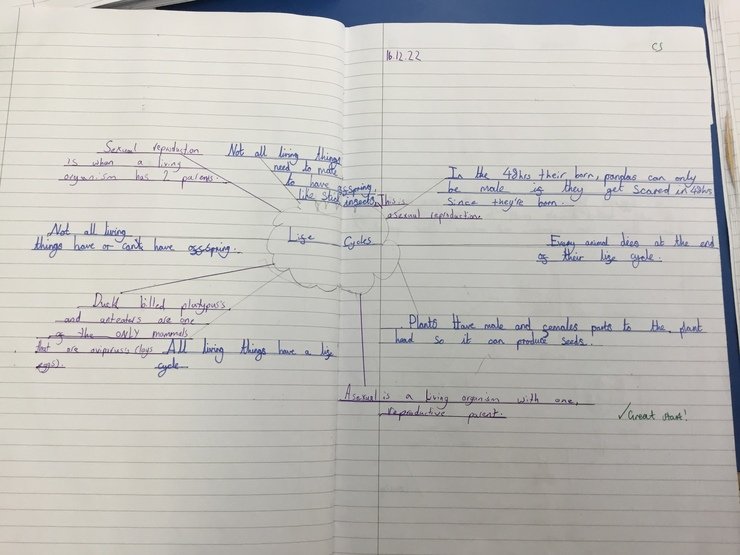 16.12.22
CS
Sexual reproduction
is when a living
organism has 2 parents.
Not all living things
need to mate
to have offspring,
like stick insects.
This is
asexual reproduction.
In the 48hrs their born, pandas can only
be male if they get scared in 48hrs
since they're born.
Not all living
things have or can't have offspring.
Life Cycles
Every animal dies at the end
of their life cycle.
Duck billed platypus's
and anteaters are one
of the ONLY mammels
that are oviparusis (lays
eggs).
All living things have a life
cycle.
Plants Have male and females parts to the plant
head so it can produce seeds!
Asexual is a living organism with one,
reproductive parent.
✓ Great start!